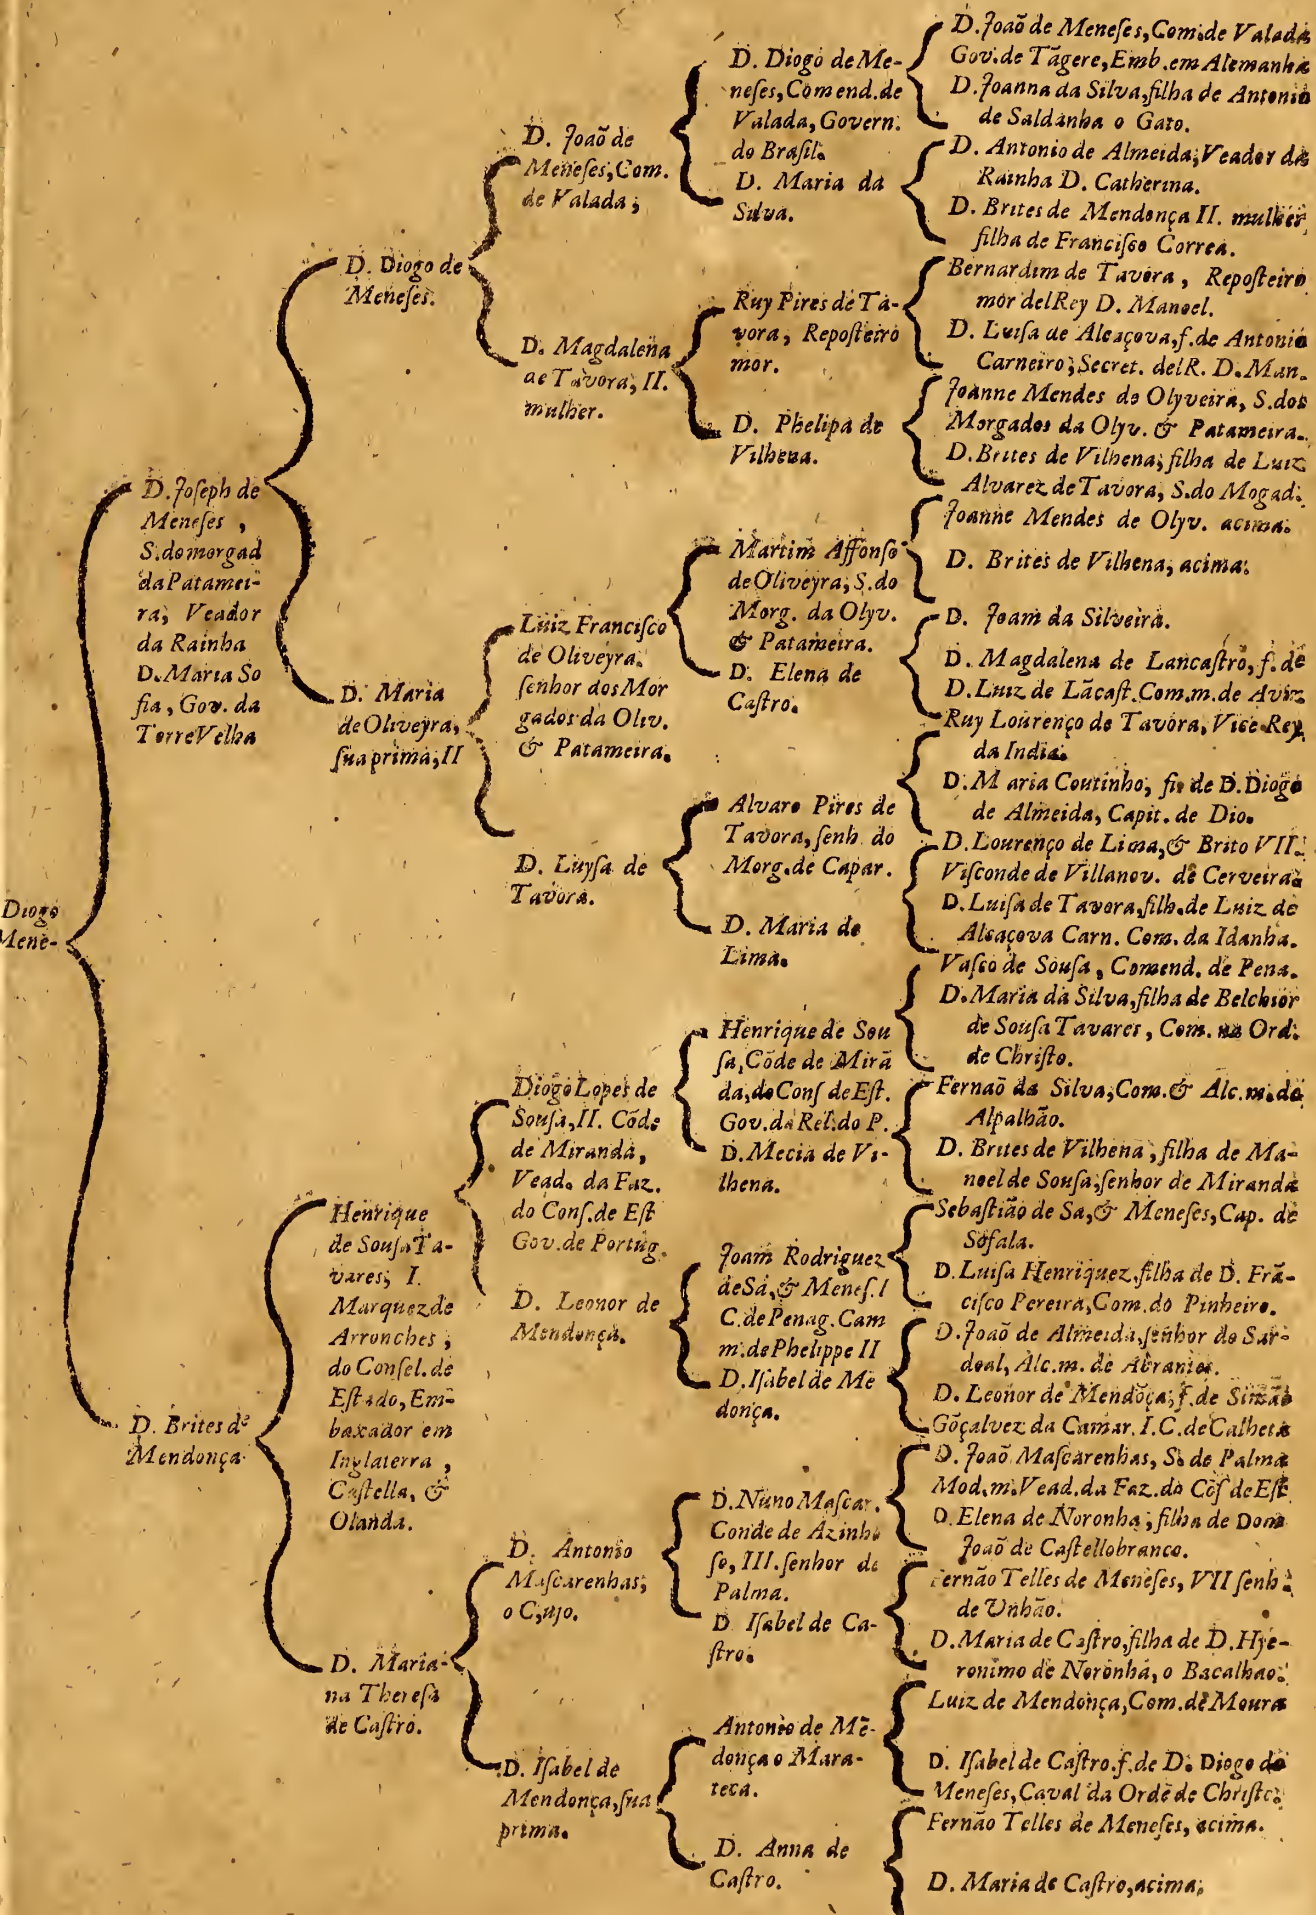 Diogo
Mene-
D. Joſeph de
Meneſes ,
S. do morgad
da Patamei-
ra; Veador
da Rainha
D. Maria So
fia, Gov. da
Torre Velha
D. Brites de
Mendonça
D. Diogo de
Meneſes.
D. Maria
de Oliveyra,
ſua prima, II
Henrique
de Souſa Ta-
vares, I.
Marquez de
Arronches ,
do Conſel. de
Eſtado, Em-
baxador em
Inglaterra ,
Caſtella, &
Olanda.
D. Maria-
na Thereſa
de Caſtro.
D. Joaõ de
Meneſes, Com.
de Valada ;
D. Magdalena
de Tavora, II.
mulher.
Luiz Franciſco
de Oliveyra.
ſenhor dos Mor
gados da Oliv.
& Patameira.
D. Luyſa de
Tavora.
Diogo Lopes de
Souſa, II. Cõde
de Miranda,
Vead. da Faz.
do Conſ. de Eſt
Gov. de Portug.
D. Leonor de
Mendonça.
D. Antonio
Maſcarenhas,
D. Iſabel de
Mendonça, ſua
prima.
D. Diogo de Me-
neſes, Comend. de
Valada, Govern.
do Braſil.
D. Maria da
Silva.
Ruy Pires de Ta-
vora, Repoſteiro
mor.
D. Phelipa de
Vilhena.
Martim Affonſo
de Oliveyra, S. do
Morg. da Olyv.
& Patameira.
D. Elena de
Caſtro.
Alvaro Pires de
Tavora, ſenh. do
Morg. de Capar.
D. Maria de
Lima.
Henrique de Sou
ſa, Cõde de Mirã
da, do Conſ de Eſt.
Gov. da Rel. do P.
D. Mecia de Vi-
lhena.
Joam Rodriguez
de Sá, & Meneſ. I
C. de Penag. Cam
m. de Phelippe II
D. Iſabel de Me
donça.
D. Nuno Maſcar.
Conde de Azinho
ſo, III. ſenhor de
Palma.
D Iſabel de Ca-
ſtro.
Antonio de Mẽ-
donça o Mara-
teca.
D. Anna de
Caſtro.
D. Joaõ de Meneſes, Com. de Valada
Gov. de Tãgere, Emb. em Alemanha
D. Joanna da Silva, filha de Antonio
de Saldanha o Gato.
D. Antonio de Almeida, Veador da
Rainha D. Catherina.
D. Brites de Mendonça II. mulher,
filha de Franciſco Correa.
Bernardim de Tavora , Repoſteiro
mor del Rey D. Manoel.
D. Luiſa de Alcaçova, f. de Antonio
Carneiro, Secret. del R. D. Man.
Joanne Mendes de Olyveira, S. dos
Morgados da Olyv. & Patameira.
D. Brites de Vilhena, filha de Luiz
Alvarez de Tavora, S. do Mogad.
Joanne Mendes de Olyv. acima.
D. Brites de Vilhena, acima.
D. Joam da Silveira.
D. Magdalena de Lancaſtro, f. de
D. Luiz de Lãcaſt. Com. m. de Aviz
Ruy Lourenço de Tavora, Vice-Rey
da India.
D. Maria Coutinho, fi. de D. Diogo
de Almeida, Capit. de Dio.
D. Lourenço de Lima, & Brito VII.
Viſconde de Villanov. de Cerveira.
D. Luiſa de Tavora, filh. de Luiz de
Alcaçova Carn. Com. da Idanha.
Vaſco de Souſa , Comend. de Pena.
D. Maria da Silva, filha de Belchior
de Souſa Tavares , Com. na Ord.
de Chriſto.
Fernaõ da Silva, Com. & Alc. m. de
Alpalhão.
D. Brites de Vilhena , filha de Ma-
noel de Souſa, ſenhor de Miranda
Sebaſtião de Sa, & Meneſes, Cap. de
Sofala.
D. Luiſa Henriquez, filha de D. Frã-
ciſco Pereira, Com. do Pinheiro.
D. Joaõ de Almeida, ſenhor do Sar-
doal, Alc. m. de Abrantes.
D. Leonor de Mendõça, f. de Simão
Gõçalvez da Camar. I. C. de Calheta
D. Joaõ Maſcarenhas, S. de Palma
Mod. m. Vead. da Faz. do Cõſ de Eſt
D. Elena de Noronha, filha de Dom
Joaõ de Caſtellobranco.
Fernão Telles de Meneſes, VII ſenh.
de Unhão.
D. Maria de Caſtro, filha de D. Hye-
ronimo de Noronha, o Bacalhao.
Luiz de Mendonça, Com. de Moura
D. Iſabel de Caſtro. f. de D. Diogo de
Meneſes, Caval da Ordẽ de Chriſto.
Fernão Telles de Meneſes, acima.
D. Maria de Caſtro, acima.